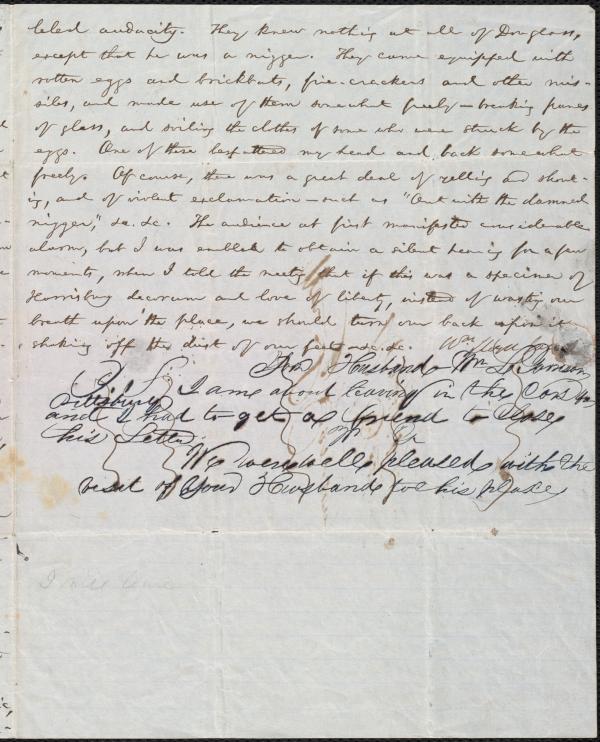 bled audacity. They knew nothing at all of Douglass,
except that he was a nigger. They came equipped with
rotten eggs and brickbats, fire-crackers and other mis-
siles, and made use of them somewhat freely—breaking panes
of glass, and soiling the clothes of some who were struck by the
eggs. One of these bespattered my head and back somewhat
freely. Of course, there was a great deal of yelling and shout-
ing, and of violent exclamation—such as "Out with the damned
nigger," &c. &c. The audience at first manifested considerable
alarm, but I was enabled to obtain a silent hearing for a few
moments, when I told the meeting that if this was a specimen of
Harrisburg decorum and love of liberty, instead of wasting our
breath upon the place, we should turn our back upon it,
shaking off the dust of our feet, &c. &c. Wm Lloyd
Husband Wm L Garrison
I am about leaving in the Cars for
Pittsburg
and I had to get a friend to close
his Letter.
We were well pleased with the
visit of your Husband to this place
I will leave